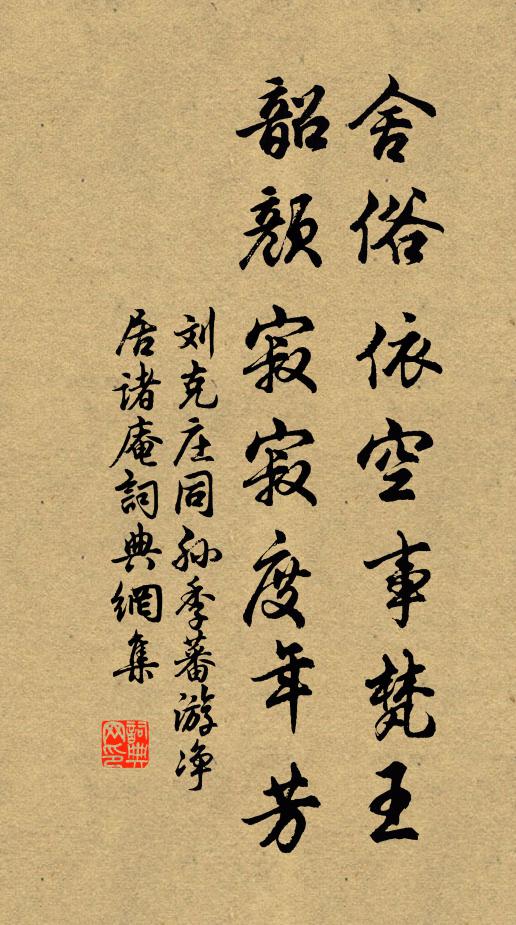 舍俗依空事梵王
韶颜寂寂度年芳
刘克庄同孙季蕃游净
居诸庵詞典網集
詞典网印